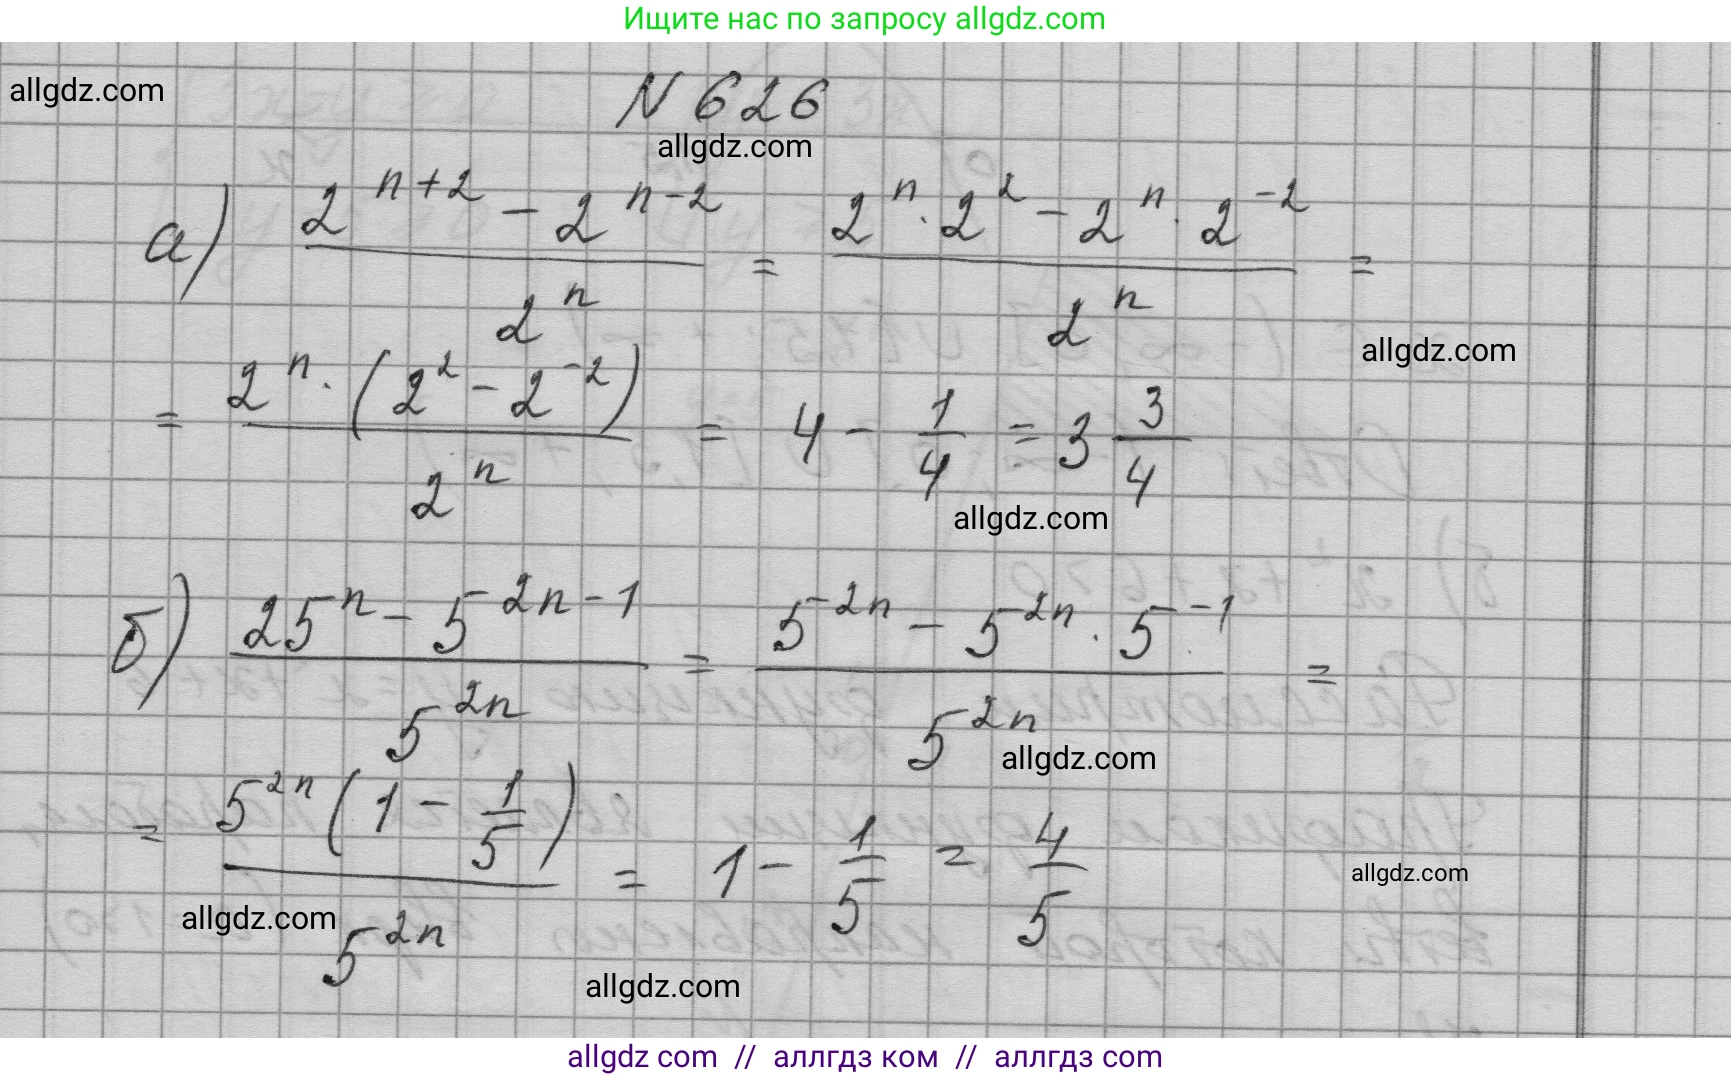 Ищите нас по запросу allgdz.com
allgdz.com
N 626
allgdz.com
а) \frac{2^{n+2} - 2^{n-2}}{2^n} = \frac{2^n · 2^2 - 2^n · 2^{-2}}{2^n} =
allgdz.com
= \frac{2^n · (2^2 - 2^{-2})}{2^n} = 4 - \frac{1}{4} = 3 \frac{3}{4}
allgdz.com
б) \frac{25^n - 5^{2n-1}}{5^{2n}} = \frac{5^{2n} - 5^{2n} · 5^{-1}}{5^{2n}} =
allgdz.com
= \frac{5^{2n} (1 - \frac{1}{5})}{5^{2n}} = 1 - \frac{1}{5} = \frac{4}{5}
allgdz.com
allgdz.com
allgdz.com
allgdz com // аллгдз ком // аллгдз com